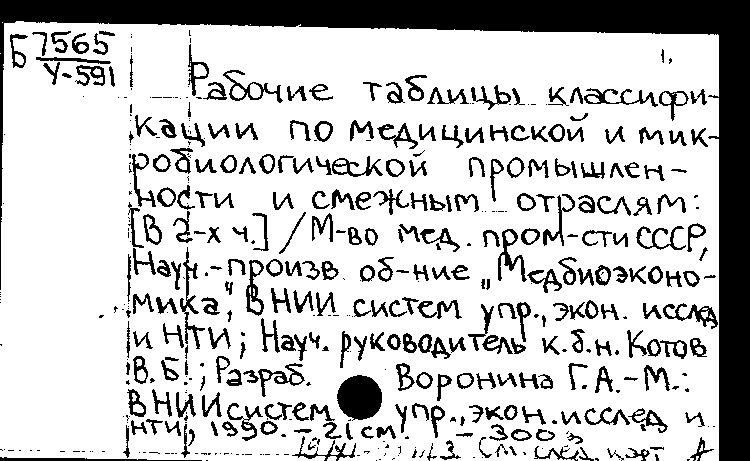 Б 7565
У-591
1.
Рабочие таблицы классифи-
кации по медицинской и мик-
робиологической промышлен-
ности и смежным отраслям:
[В 2-х ч.] / М-во мед. пром-сти СССР,
Науч.-произв. об-ние „Медбиоэконо-
мика", ВНИИ систем упр., экон. исслед
и НТИ; Науч. руководитель к.б.н. Котов
В.Б.; Разраб. Воронина Г.А.-М.:
ВНИИ систем упр., экон. исслед и
НТИ, 1990. - 21 см. - 300 э
см. след. карт